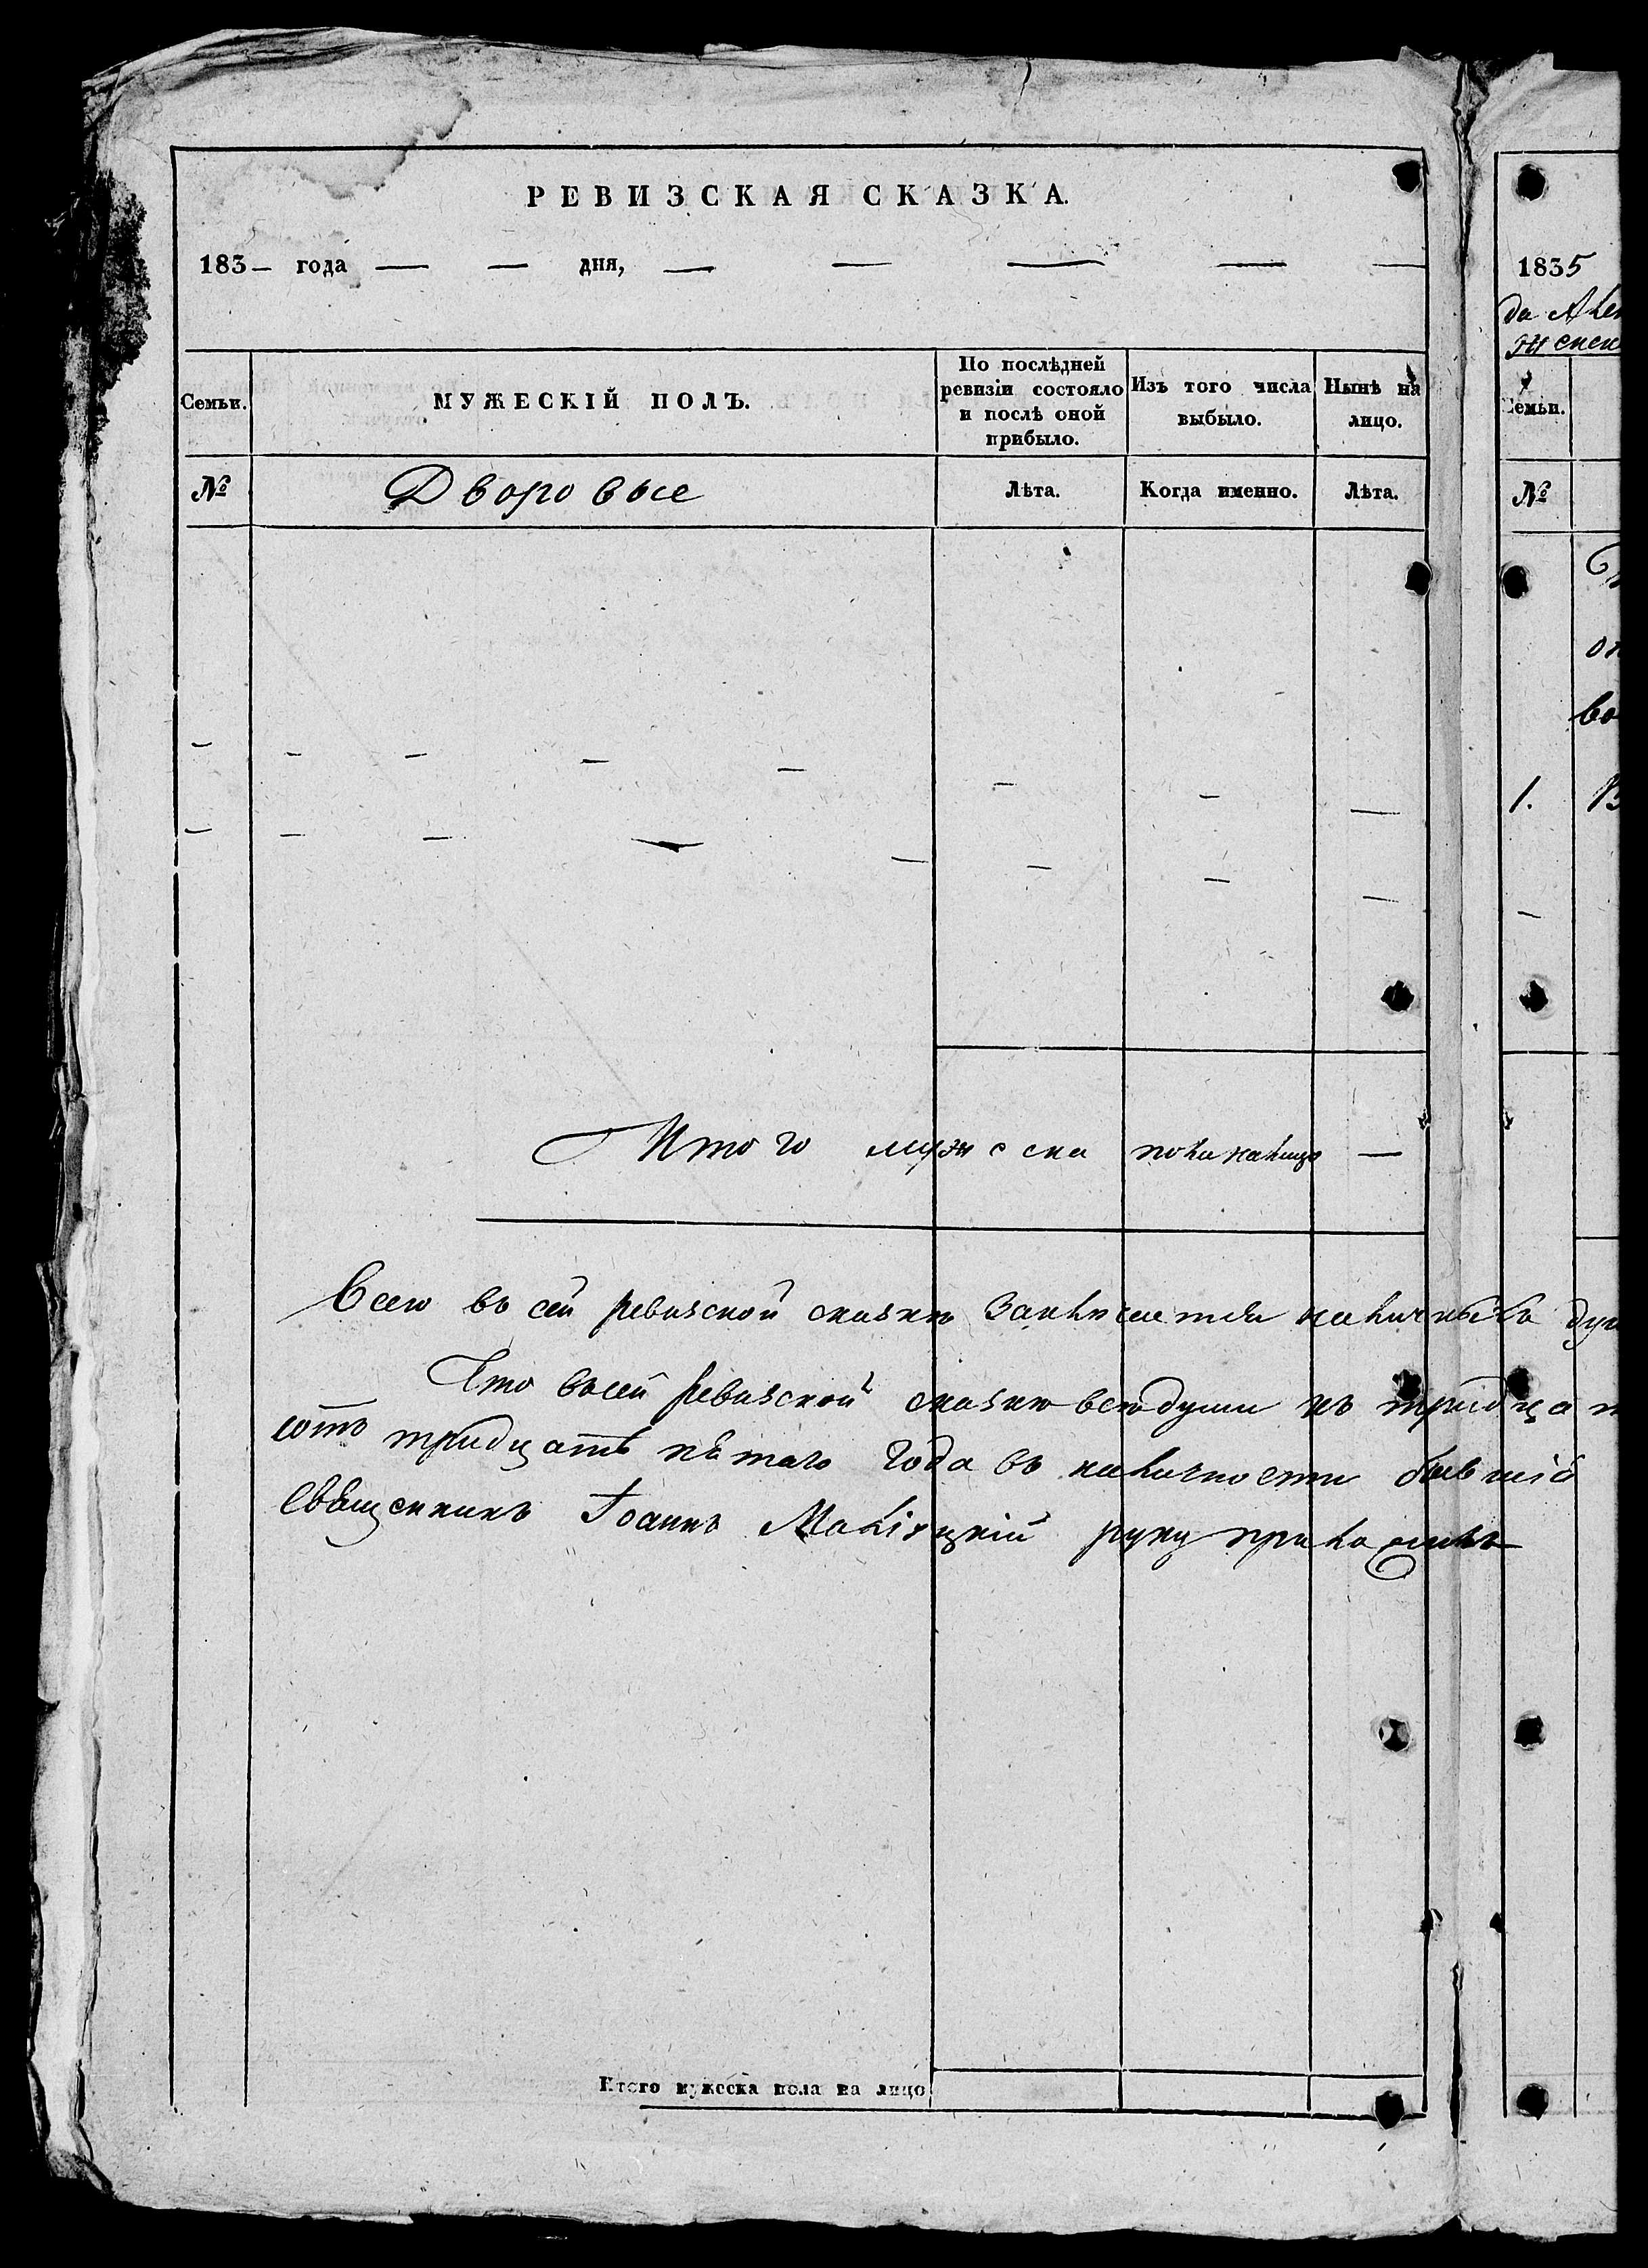 РЕВИЗСКАЯ СКАЗКА.
183— года — — дня, — — — — —
Семьи.
МУЖЕСКІЙ ПОЛЪ.
По послѣдней
ревизіи состояло
и послѣ оной
прибыло.
Изъ того числа
выбыло.
Нынѣ на
лицо.
№
Дворовые
Лѣта.
Когда именно.
Лѣта.
— — — — — — — —
— — — — — — — —
Итого мужеска пола налицо —
Всего въ сей ревизской сказкѣ заключается наличныхъ
Что въ сей ревизской сказкѣ всѣ души
сотъ тридцать пятаго года въ наличности
Священникъ Іоаннъ руку приложилъ
Итого мужеска пола на лицо
1835
да
Семьи.
№
во
1.
—